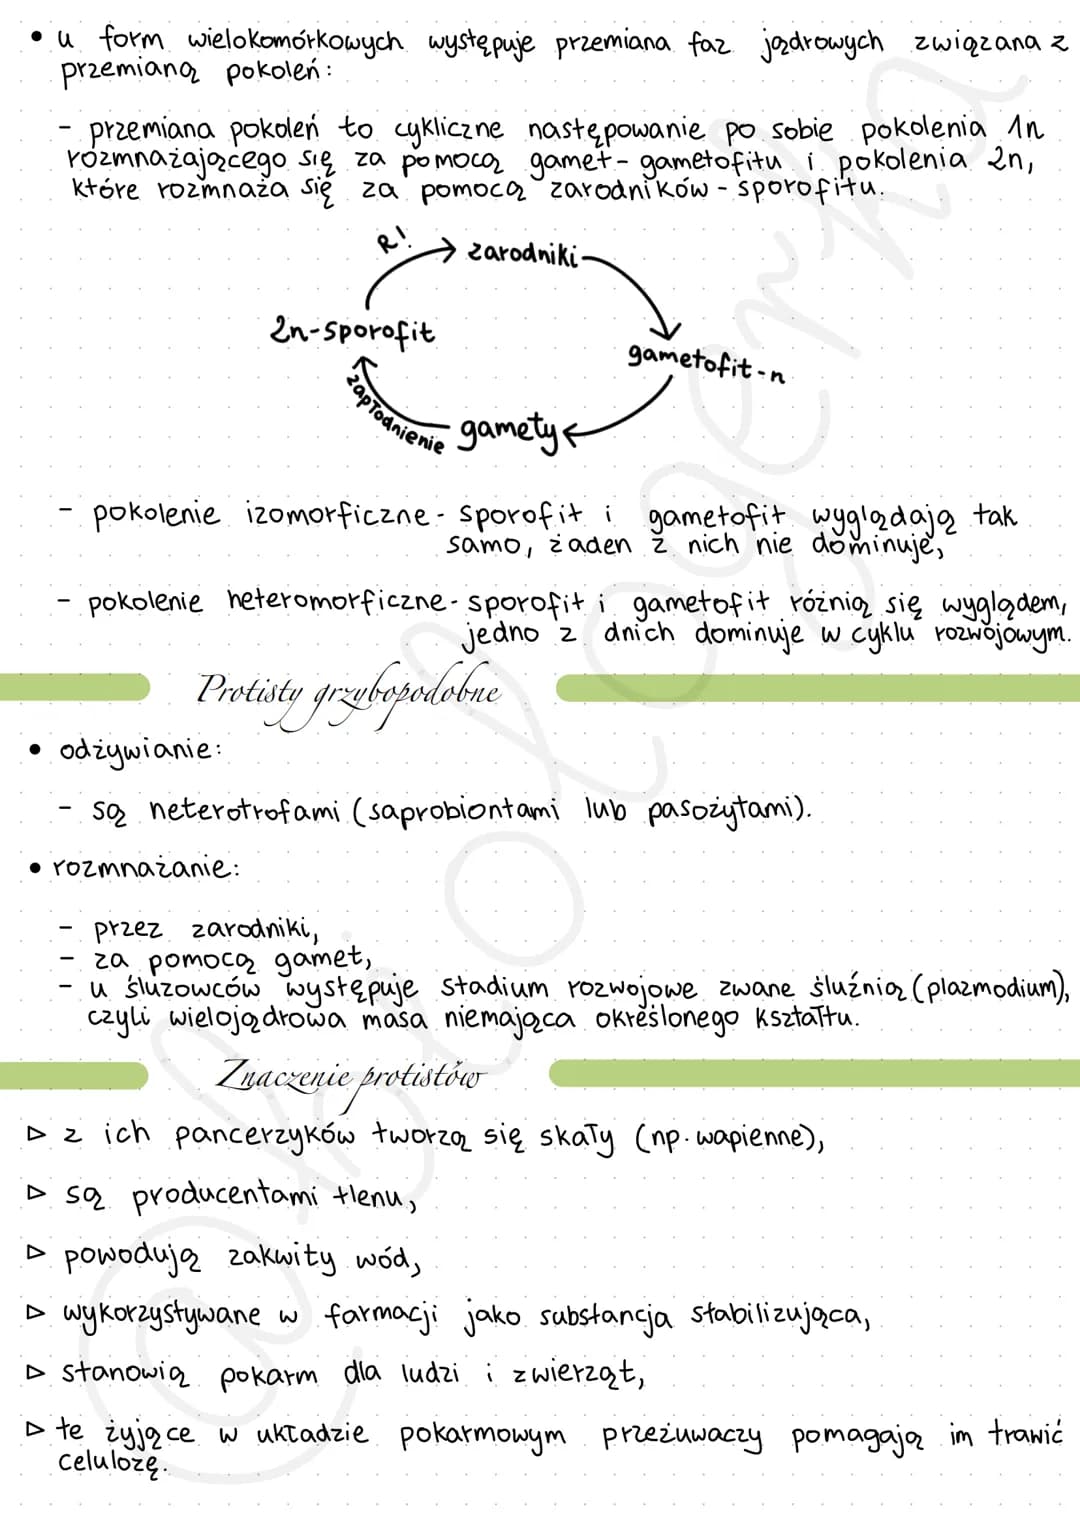 • u form wielokomórkowych występuje przemiana faz jądrowych związana z
przemianą pokoleń:
- przemiana pokoleń to cykliczne następowanie po sobie pokolenia 1n
rozmnażającego się za pomocą gamet - gametofitu i pokolenia 2n,
które rozmnaża się za pomocą zarodników - sporofitu.
R!
zarodniki
2n-sporofit
gametofit-n
zapłodnienie
gamety
- pokolenie izomorficzne - sporofit i gametofit wyglądają tak
samo, żaden z nich nie dominuje,
- pokolenie heteromorficzne - sporofit i gametofit różnią się wyglądem,
jedno z dnich dominuje w cyklu rozwojowym.
Protisty grzybopodobne
• odżywianie:
- są heterotrofami (saprobiontami lub pasożytami).
• rozmnażanie:
- przez zarodniki,
- za pomocą gamet,
- u śluzowców występuje stadium rozwojowe zwane śluźnią (plazmodium),
czyli wielojądrowa masa niemająca określonego kształtu.
Znaczenie protistów
▷ z ich pancerzyków tworzą się skały (np. wapienne),
▷ są producentami tlenu,
▷ powodują zakwity wód,
▷ wykorzystywane w farmacji jako substancja stabilizująca,
▷ stanowią pokarm dla ludzi i zwierząt,
▷ te żyjące w układzie pokarmowym przeżuwaczy pomagają im trawić
celulozę.